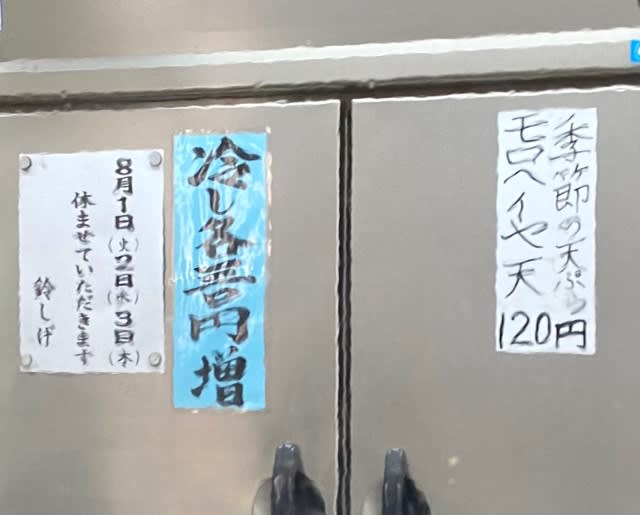 季節の天ぷら
モロヘイヤ天
120円
冷し各円増
8月1日(火)2日(水)3日(木)
休ませていただきます
鈴しげ